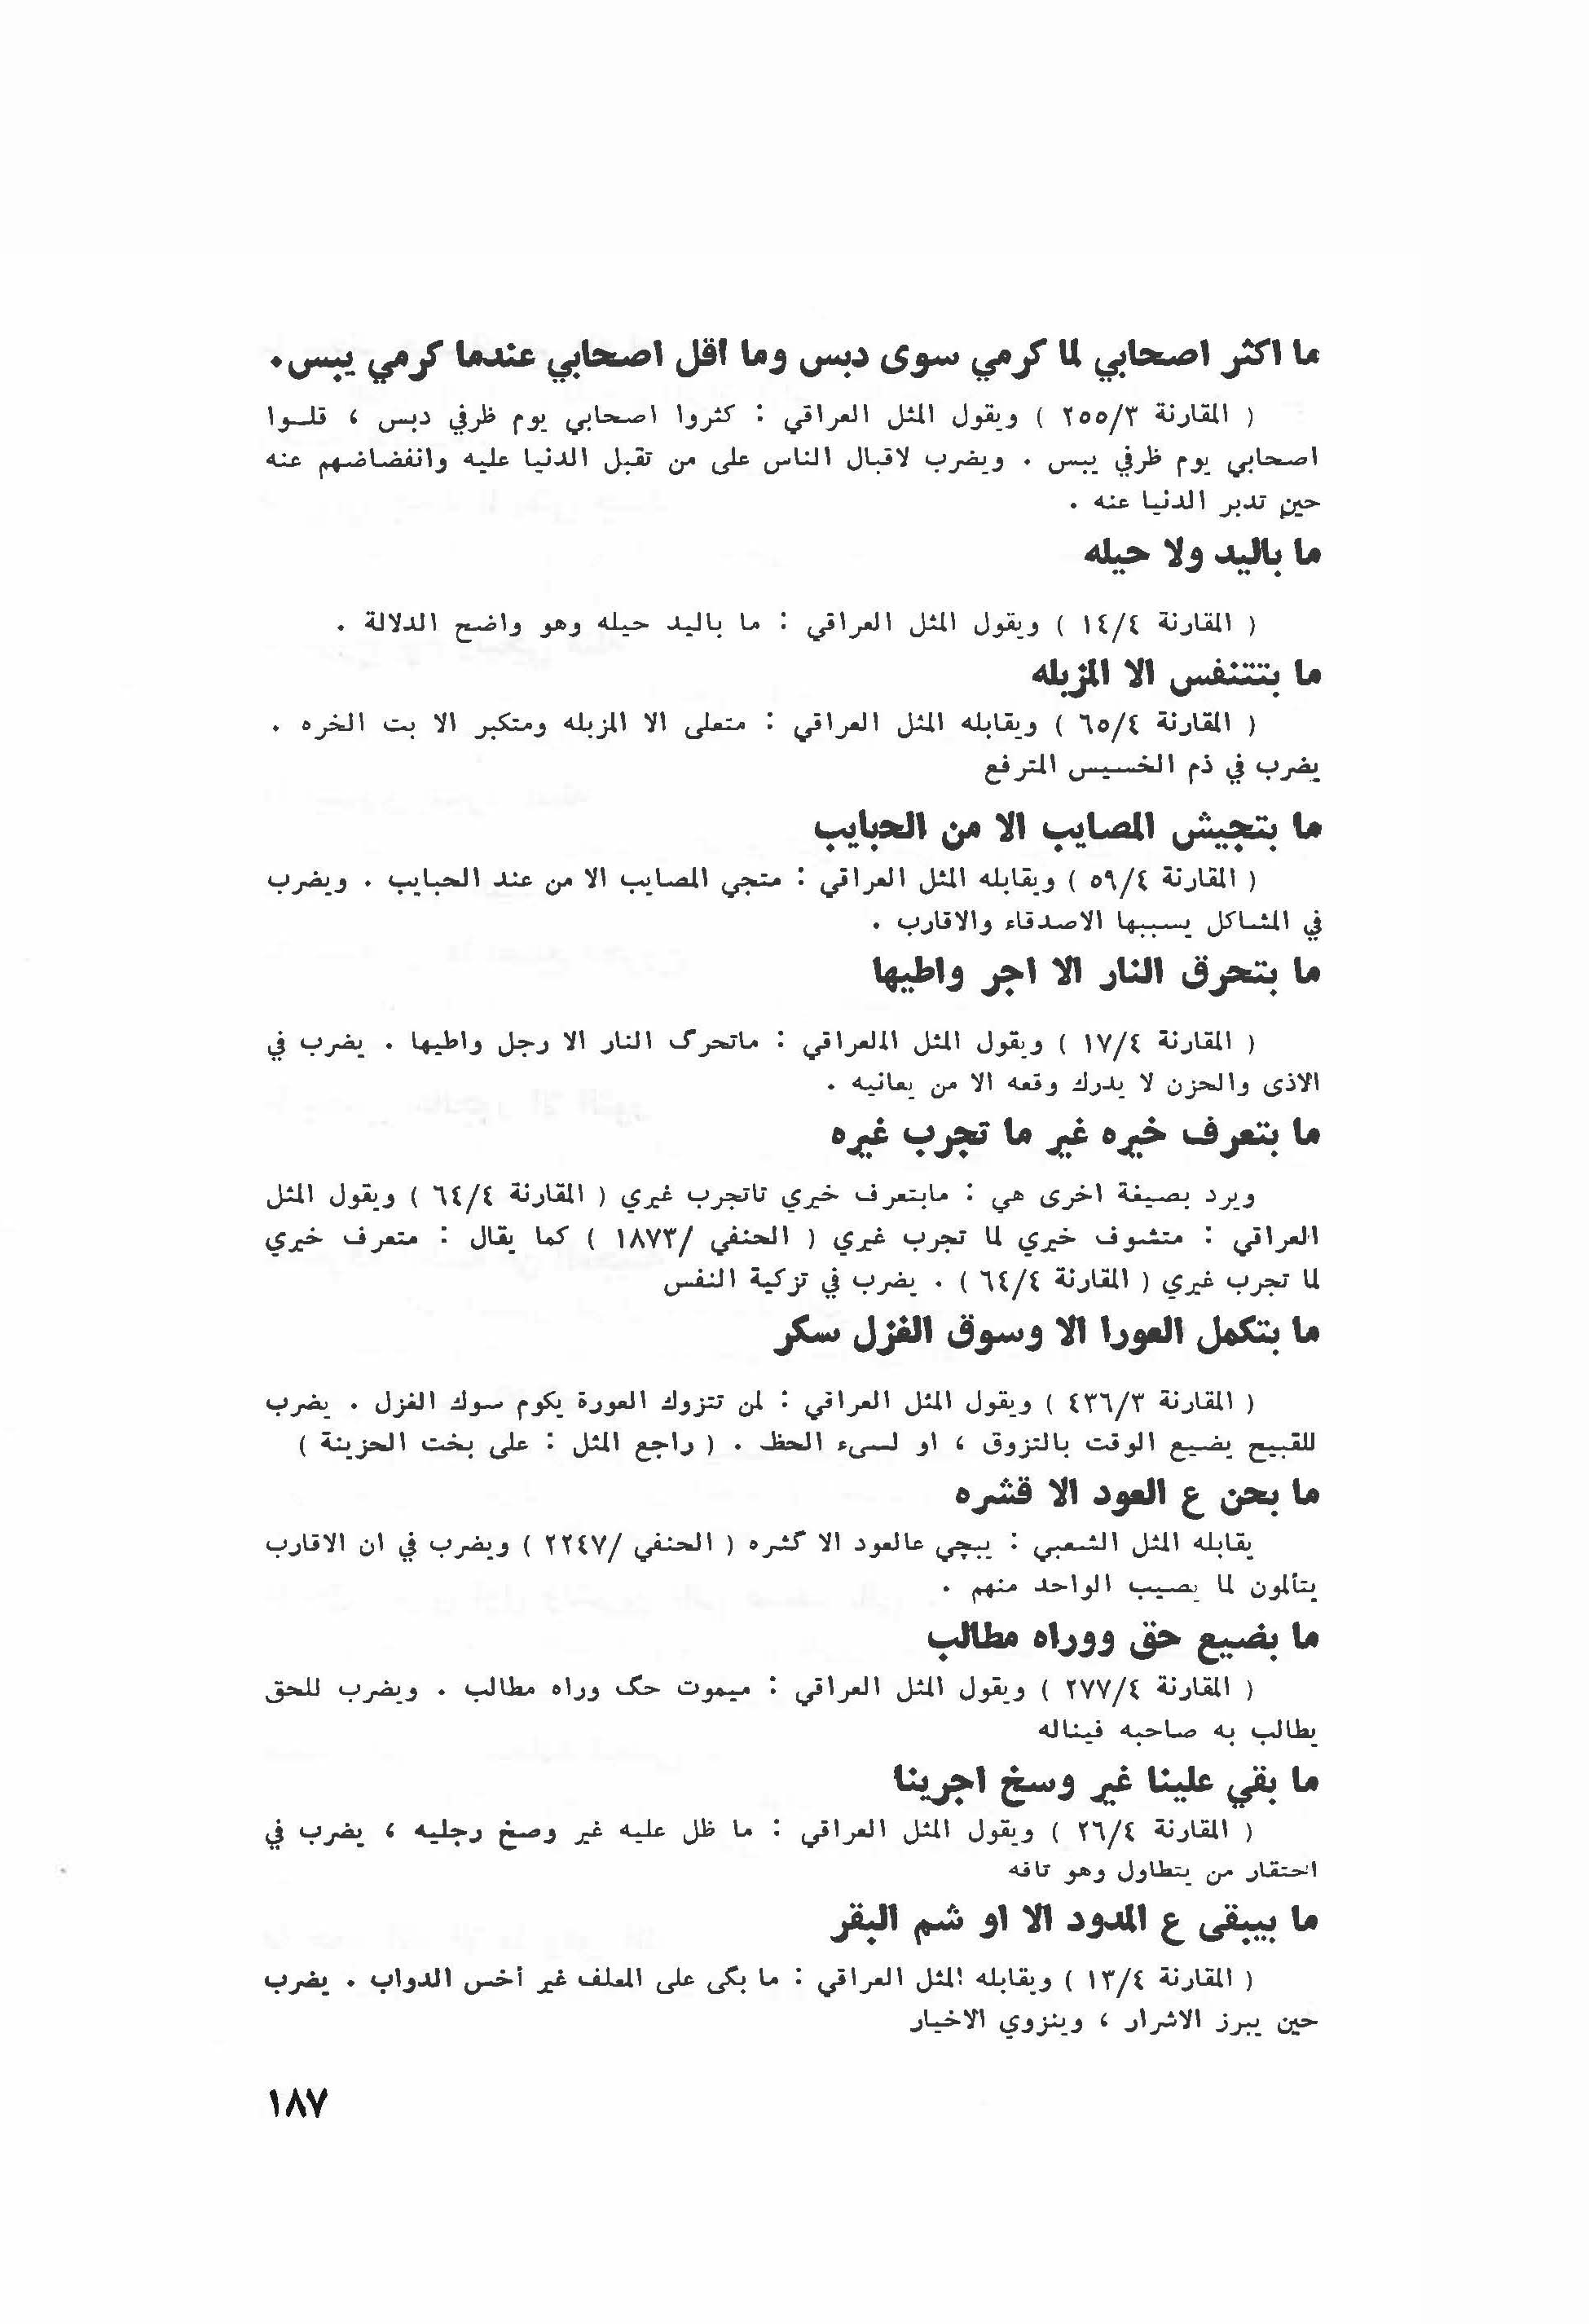 ما اكثر اصحابي لما كرمي سوى دبس وما اقل اصحابي عندما كرمي يبس.
( المقارنة ٢٥٥/٣ ) ويقول المثل العراقي : كثروا اصحابي يوم ظرفي دبس ، قلـوا
اصحابي يوم ظرفي يبس . ويضرب لاقبال الناس على من تقبل الدنيا عليه وانفضاضهم عنه
حين تدبر الدنيا عنه .
ما باليد ولا حيله
( المقارنة ١٤/٤ ) ويقول المثل العراقي : ما باليد حيله وهو واضح الدلالة .
ما بتتنفس الا المزبله
( المقارنة ٦٥/٤ ) ويقابله المثل العراقي : متعلى الا المزبله ومتكبر الا بت الخره .
يضرب في ذم الخسيس المترفع
ما بتجيش المصايب الا من الحبايب
( المقارنة ٥٩/٤ ) ويقابله المثل العراقي : متجي المصايب الا من عند الحبايب . ويضرب
في المشاكل يسببها الاصدقاء والاقارب .
ما بتحرق النار الا اجر واطيها
( المقارنة ١٧/٤ ) ويقول المثل االعراقي : ماتحرگ النار الا رجل واطيها . يضرب في
الاذى والحزن لا يدرك وقعه الا من يعانيه .
ما بتعرف خيره غير ما تجرب غيره
ويرد بصيغة اخرى هي : مابتعرف خيري تاتجرب غيري ( المقارنة ٦٤/٤ ) ويقول المثل
العراقي : متشوف خيري لما تجرب غيري ( الحنفي /١٨٧٣ ) كما يقال : متعرف خيري
لما تجرب غيري ( المقارنة ٦٤/٤ ) . يضرب في تزكية النفس
ما بتكمل العورا الا وسوق الغزل سكر
( المقارنة ٤٣٦/٣ ) ويقول المثل العراقي : لمن تتزوك العورة يكوم سوك الغزل . يضرب
للقبيح يضيع الوقت بالتزوق ، او لسىء الحظ . ( راجع المثل : على بخت الحزينة )
ما بحن ع العود الا قشره
يقابله المثل الشعبي : يبچي عالعود الا گشره ( الحنفي /٢٢٤٧ ) ويضرب في ان الاقارب
يتألمون لما يصيب الواحد منهم .
ما بضيع حق ووراه مطالب
( المقارنة ٢٧٧/٤ ) ويقول المثل العراقي : ميموت حگ وراه مطالب . ويضرب للحق
يطالب به صاحبه فيناله
ما بقي علينا غير وسخ اجرينا
( المقارنة ٢٦/٤ ) ويقول المثل العراقي : ما ظل عليه غير وصخ رجليه ، يضرب في
احتقار من يتطاول وهو تافه
ما بيبقى ع المدود الا او شم البقر
( المقارنة ١٣/٤ ) ويقابله المثل العراقي : ما بگى على المعلف غير أخس الدواب . يضرب
حين يبرز الاشرار ، وينزوي الاخيار
١٨٧